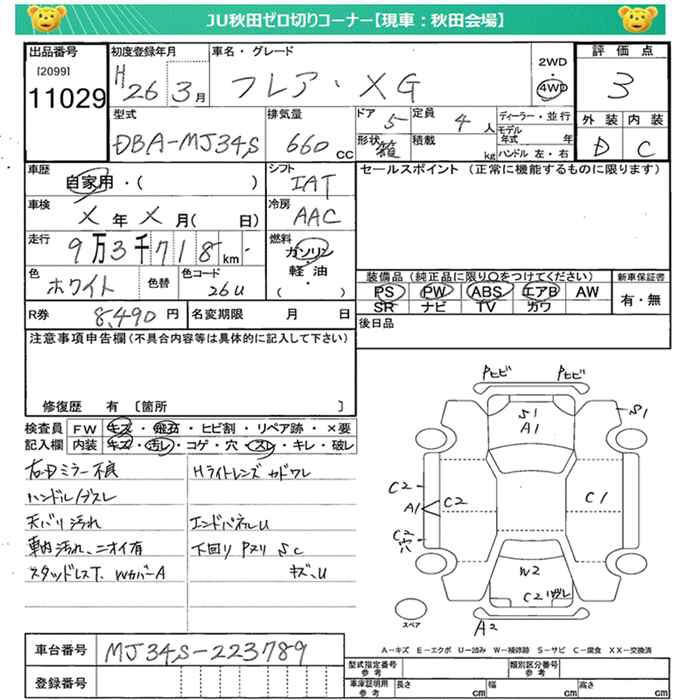 JU秋田ゼロ切りコーナー【現車：秋田会場】
出品番号
[2099]
11029
初度登録年月
H26 3月
車名・グレード
フレア・XG
2WD
4WD
評価点
3
型式
DBA-MJ34S
排気量
660 cc
ドア 5
定員 4人
形状 箱
積載 kg
ディーラー・並行
モデル年式 年
ハンドル 左・右
外装 内装
D C
車歴
自家用・( )
シフト
IAT
セールスポイント (正常に機能するものに限ります)
車検
X年X月( 日)
冷房
AAC
走行
9万3千718km
燃料
ガソリン
軽油
( )
色
ホワイト
色替
色コード
26U
装備品 (純正品に限り○をつけてください)
PS PW ABS エアB AW
SR ナビ TV カワ
新車保証書
有・無
R券 8,490円
名変期限 月 日
後日品
注意事項申告欄(不具合内容等は具体的に記入して下さい)
修復歴 有 〔箇所 〕
検査員 FW キズ・飛石・ヒビ割・リペア跡・×要
記入欄 内装 キズ・汚レ・コゲ・穴・スレ・キレ・破レ
右Dミラー不良
Hライトレンズ
ハンドルスレ
天バリ汚れ
エンドパネルU
車内汚れ、ニオイ有
下回り Pヌリ SC
スタッドレスT. WカバーA
キズ、U
Pヒビ Pヒビ
S1
A1
S1
C2
A1
C2
C2
穴
C1
W2
C2
スペア
A2
A−キズ E−エクボ U−凹み W−補修跡 S−サビ C−腐食 XX−交換済
車台番号
MJ34S-223789
登録番号
型式指定番号
参考
類別区分番号
参考
車庫証明用
参考
長さ cm
幅 cm
高さ cm